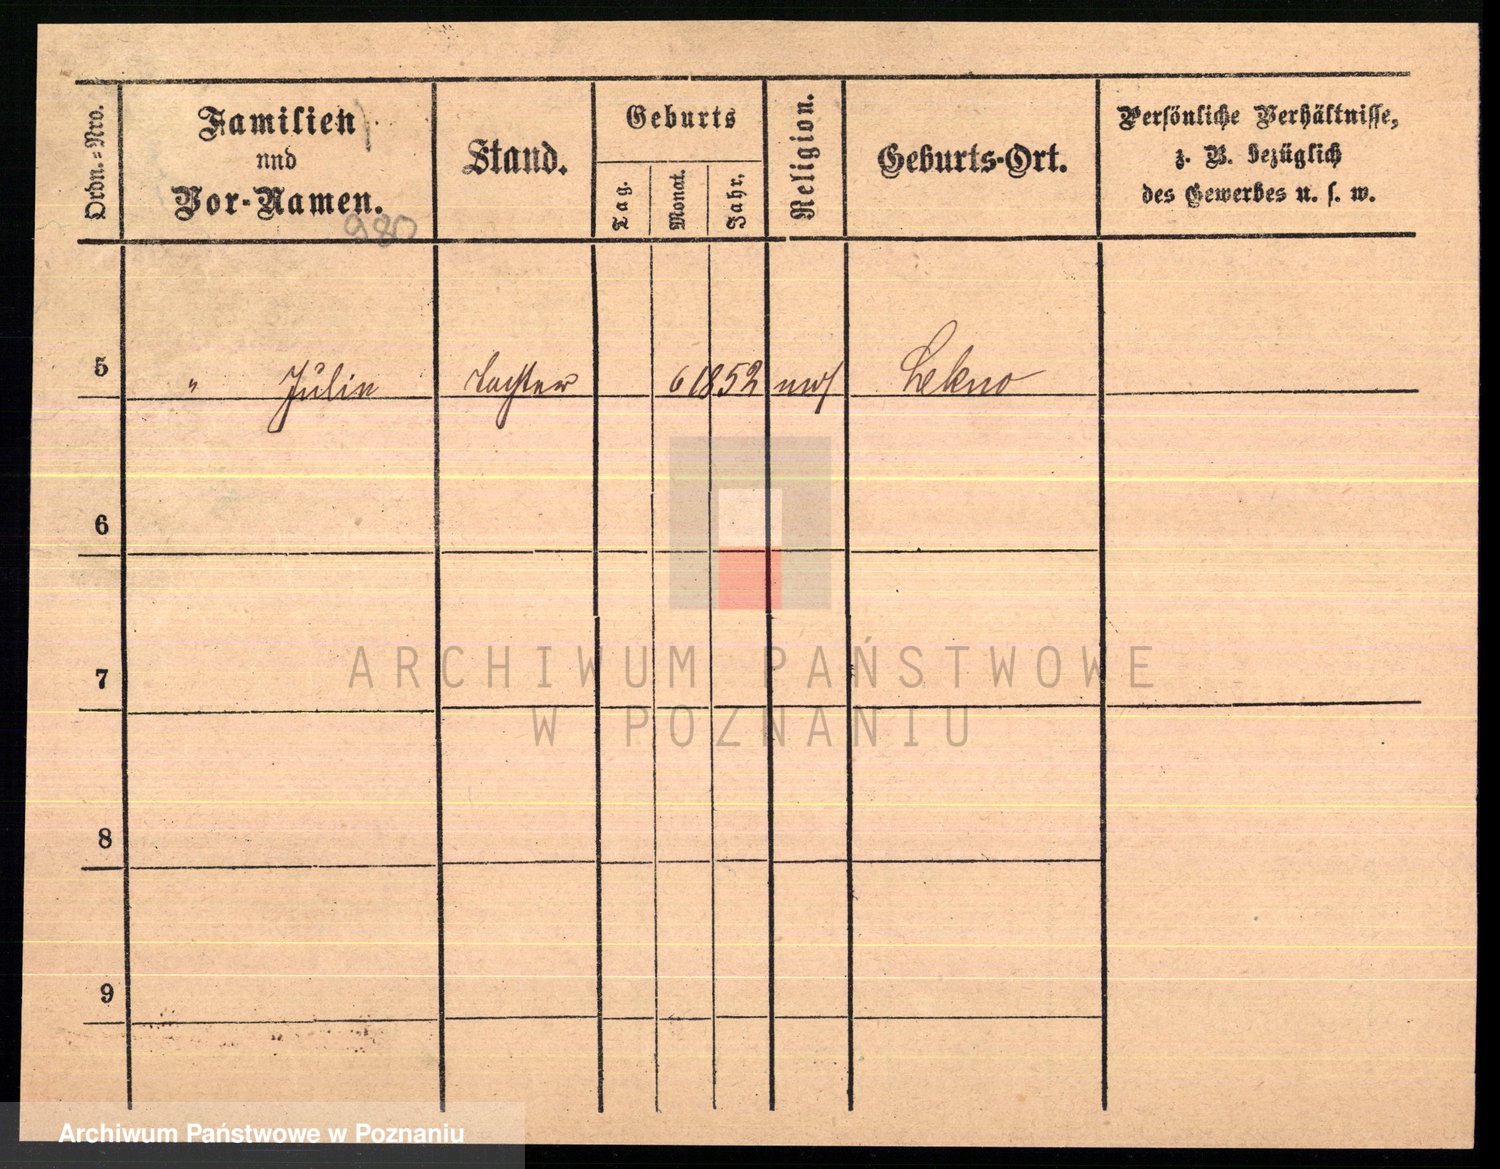 Ordn.=Nro.
Familien
und
Vor-Namen.
Stand.
Geburts
Tag.
Monat.
Jahr.
Religion.
Geburts-Ort.
Persönliche Verhältnisse,
z. B. bezüglich
des Gewerbes u. s. w.
980
5 " Julie Tochter 6 1852 Lekno
6
7
8
9
ARCHIWUM PAŃSTWOWE
W POZNANIU
Archiwum Państwowe w Poznaniu